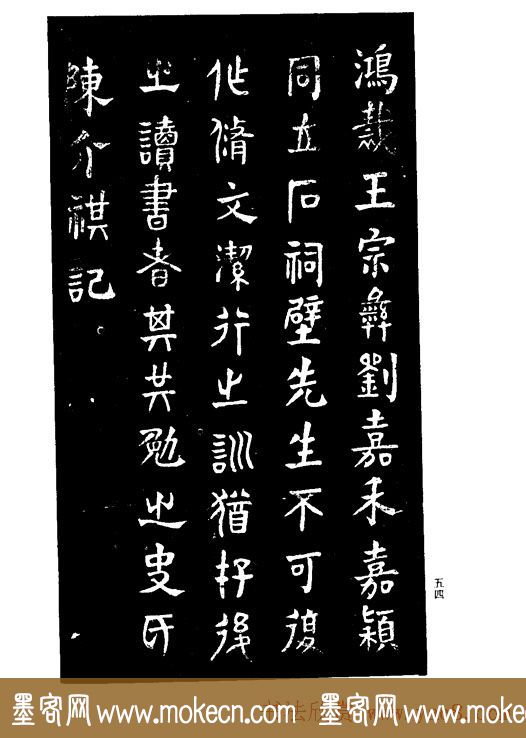 鴻裁王宗彝劉嘉禾嘉穎
同立石祠壁先生不可復
作脩文潔行之訓猶存後
之讀書者其共勉之史氏
陳介祺記
五四
墨客网 www.mokecn.com 墨客网 www.mokecn.com 墨客网